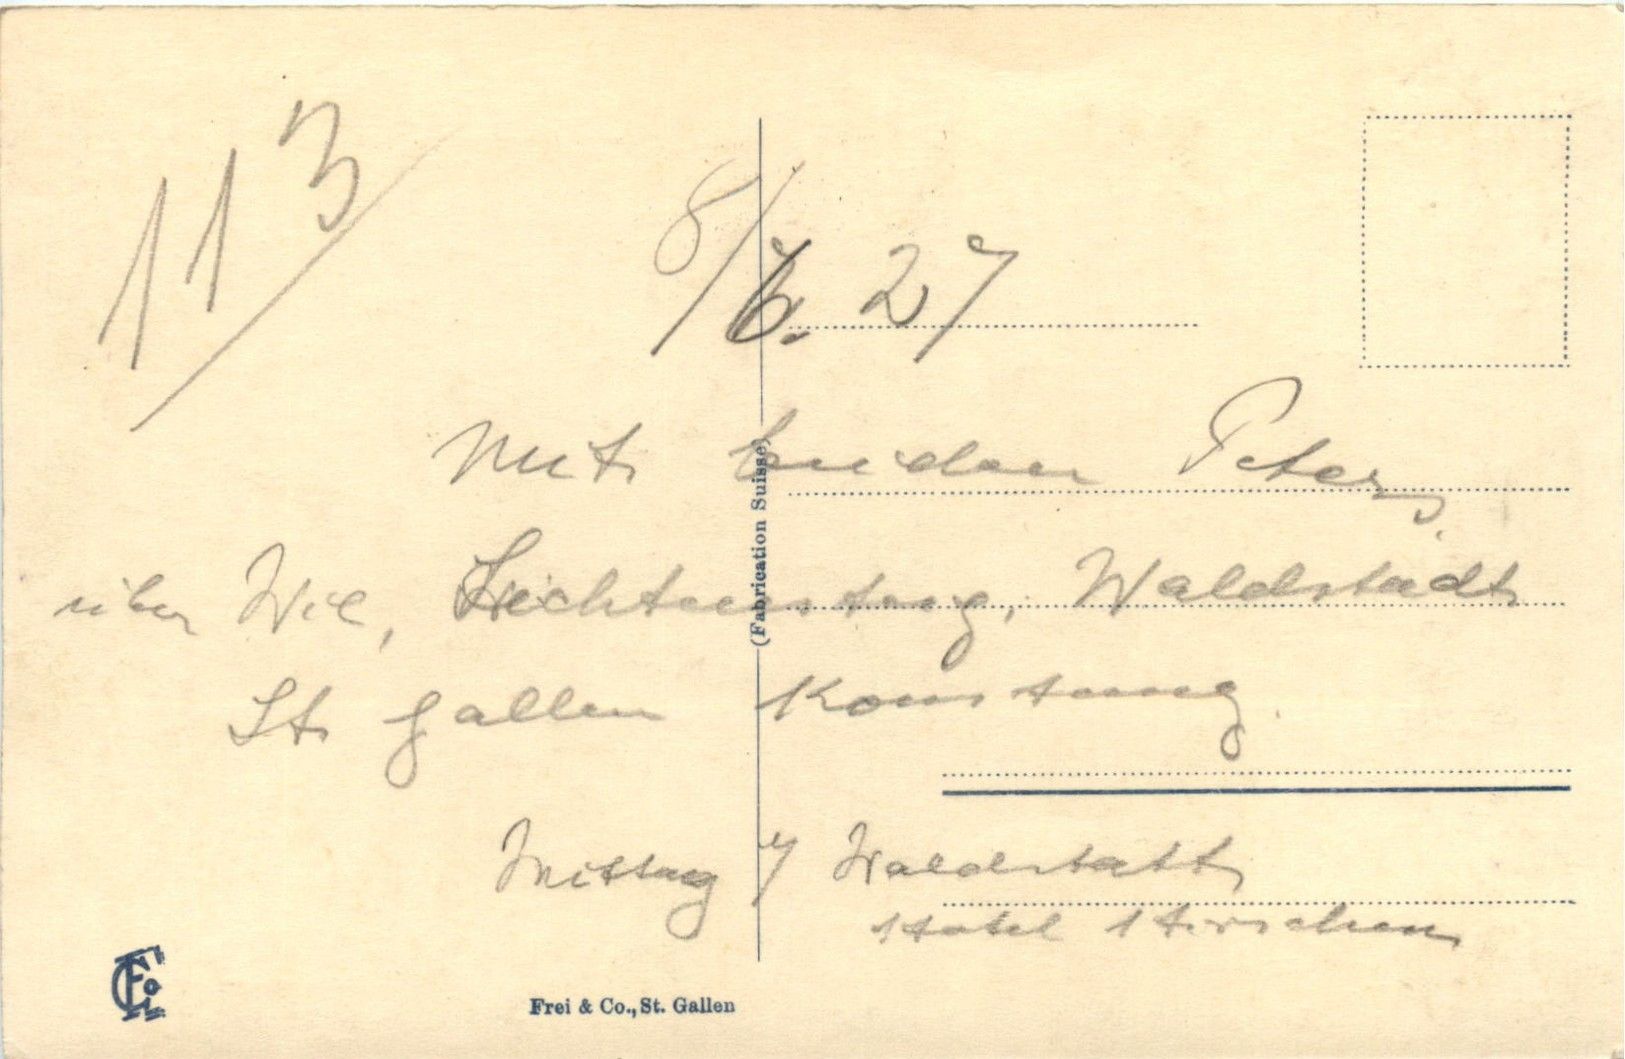 113
8/6. 27
(Fabrication Suisse)
Mit beiden Peter,
über Wil, Lichtensteig, Waldstadt
St. Gallen Konstanz.
Mittag / Waldstatt
Hotel Hirschen
Frei & Co., St. Gallen